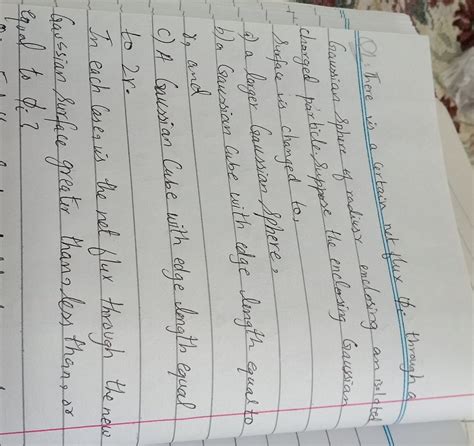 Q1: There is a certain net flux Φi through a
Gaussian Sphere of radius r enclosing an isolated
charged particle. Suppose the enclosing Gaussian
Surface is changed to,
a) a larger Gaussian Sphere,
b) a Gaussian Cube with edge length equal to
r, and
c) A Gaussian Cube with edge length equal
to 2r.
In each case, is the net flux through the new
Gaussian Surface greater than, less than, or
equal to Φi?